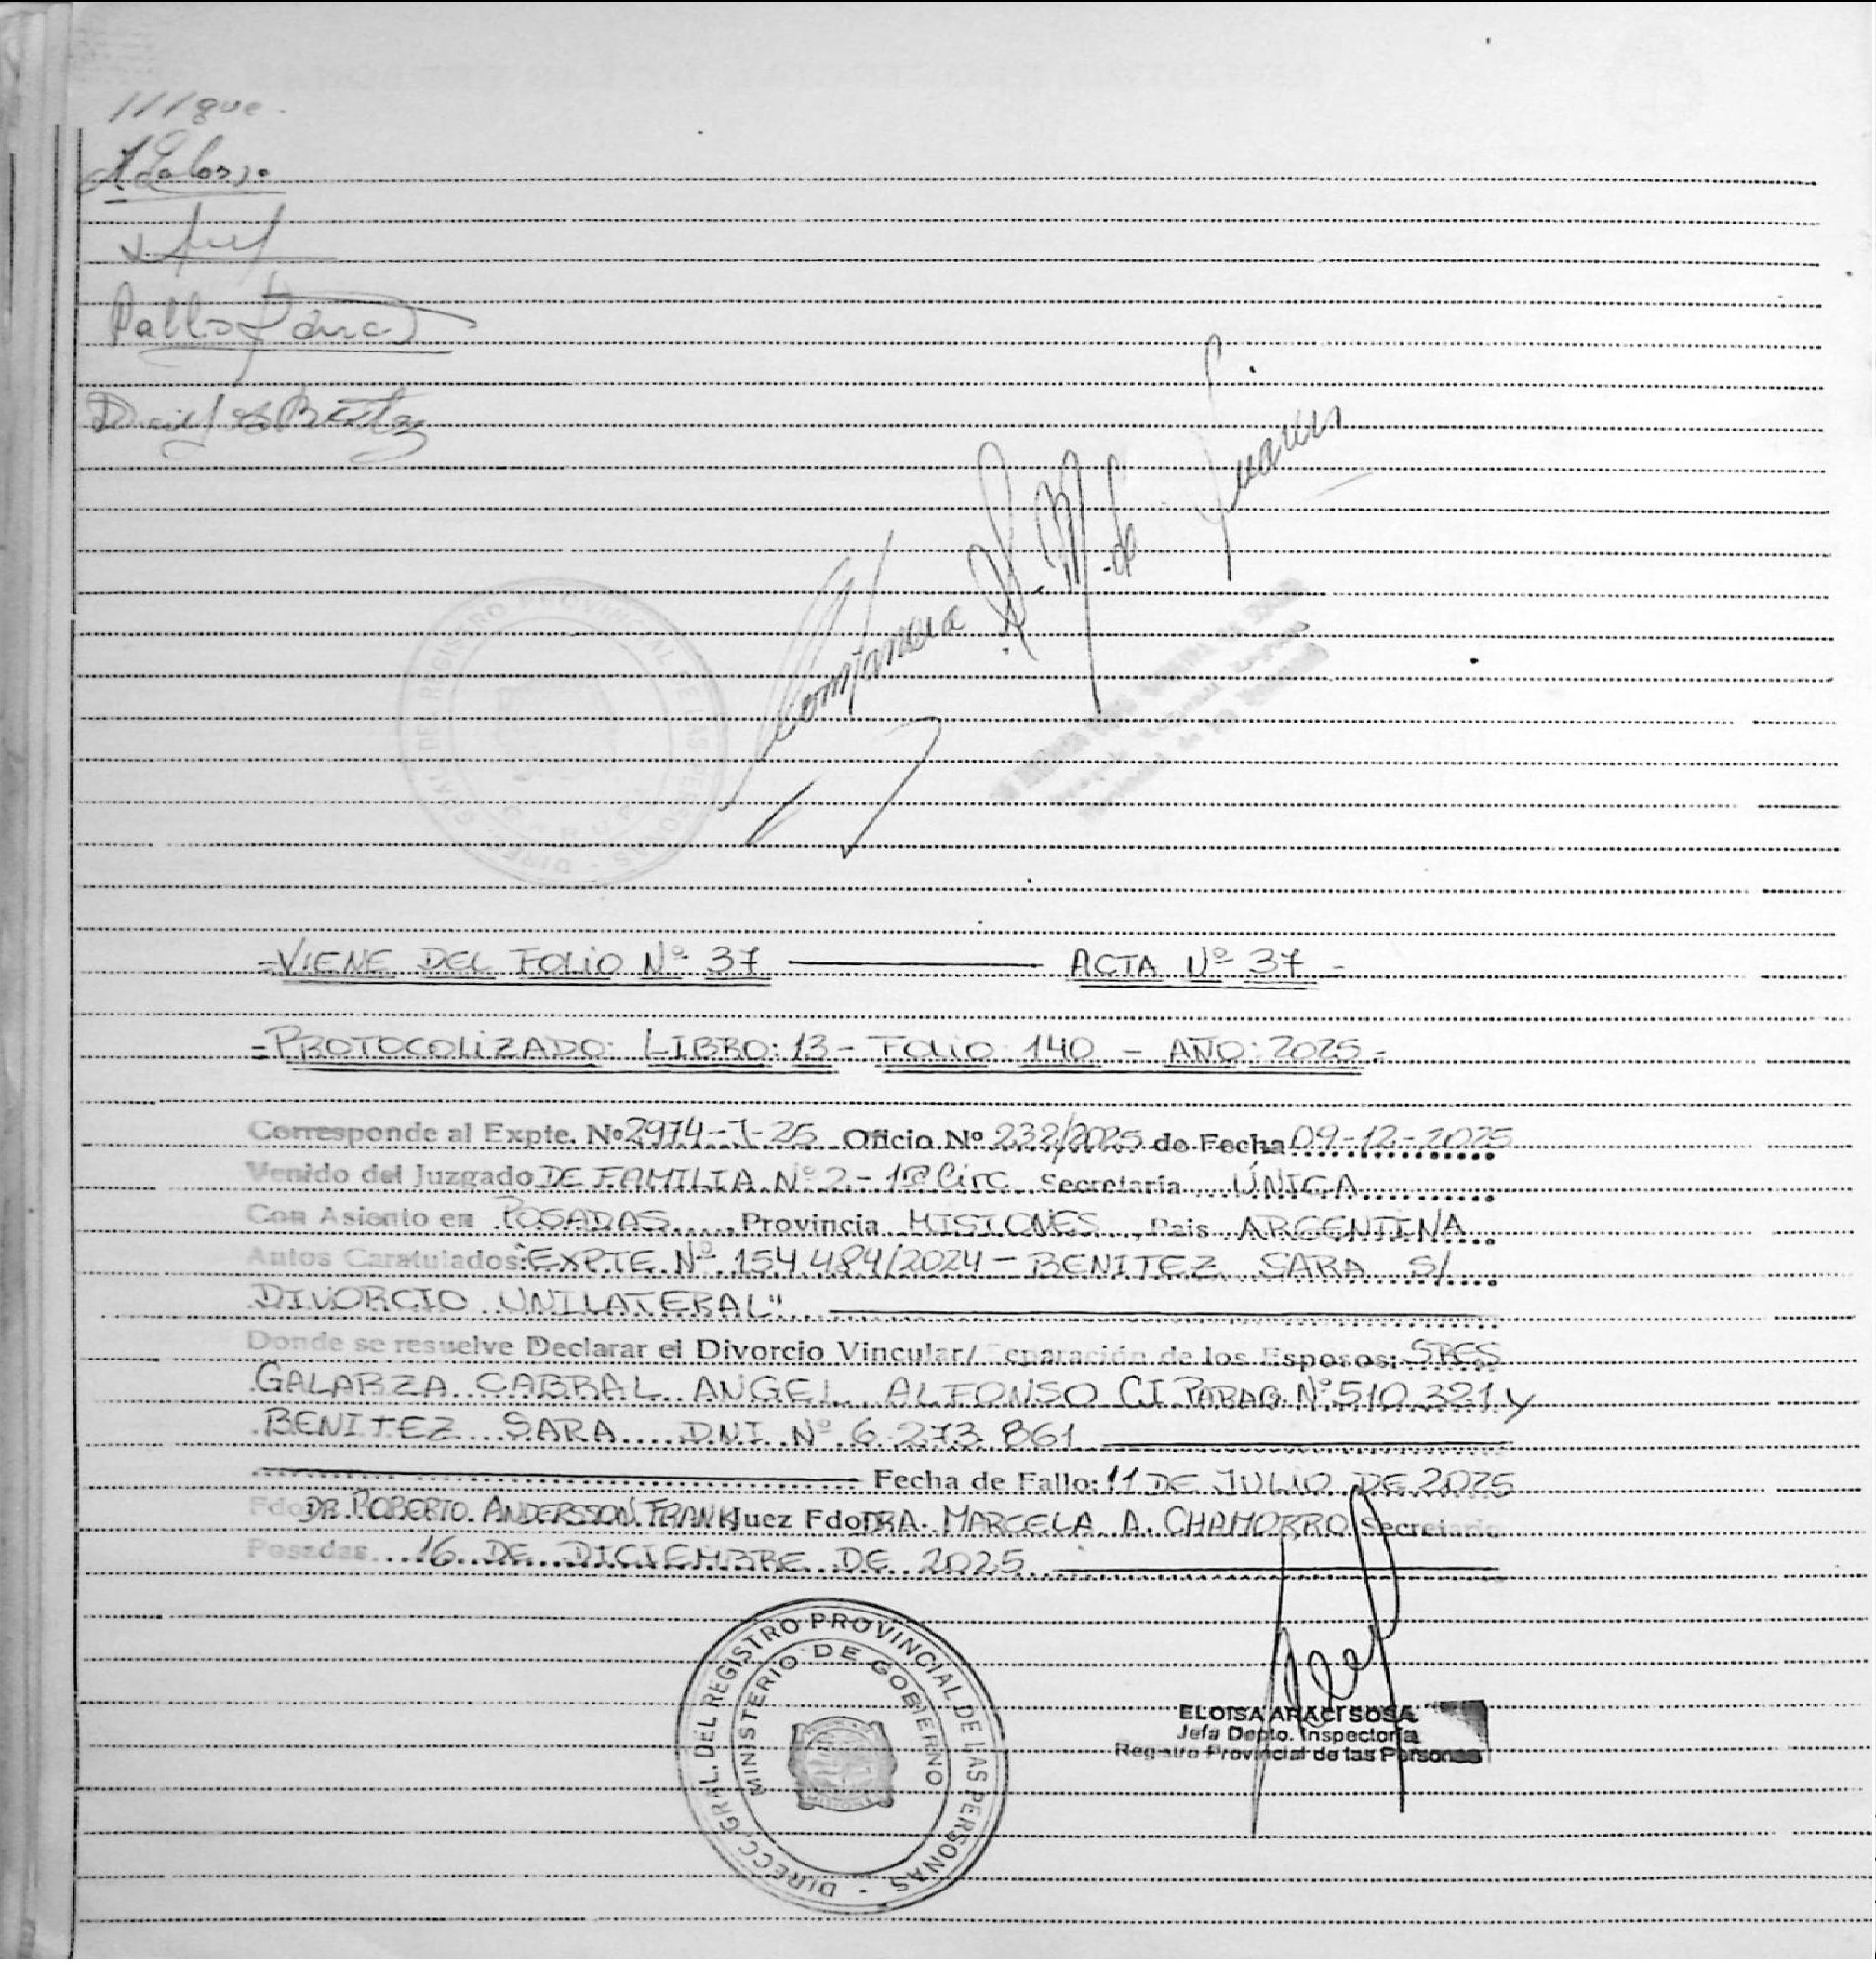 ///gue.
Pablo
=VIENE DEL FOLIO Nº 37 ACTA Nº 37=
=PROTOCOLIZADO: LIBRO: 13 - FOLIO 140 - AÑO: 2025=
Corresponde al Expte. Nº 2974-J-25 Oficio Nº 232/2025 de Fecha 09-12-2025
Venido del Juzgado DE FAMILIA Nº 2 - 1ra Circ Secretaria ÚNICA
Con Asiento en POSADAS, Provincia MISIONES, Pais ARGENTINA
Autos Caratulados: "EXPTE Nº 154.484/2024 - BENITEZ SARA S/
DIVORCIO UNILATERAL"
Donde se resuelve Declarar el Divorcio Vincular/Separación de los Esposos: SRES
GALARZA CABRAL ANGEL ALFONSO CI PARAG. Nº 510.321 y
BENITEZ SARA D.N.I. Nº 6.273.861
Fecha de Fallo: 11 DE JULIO DE 2025
Fdo DR. ROBERTO ANDERSSON FRANK Juez Fdo DRA. MARCELA A. CHAMORRO Secretario
Posadas 16 DE DICIEMBRE DE 2025
DIRECC. GRAL. DEL REGISTRO PROVINCIAL DE LAS PERSONAS
MINISTERIO DE GOBIERNO
ELOISA ARACI SOSA
Jefa Depto. Inspectoria
Registro Provincial de las Personas